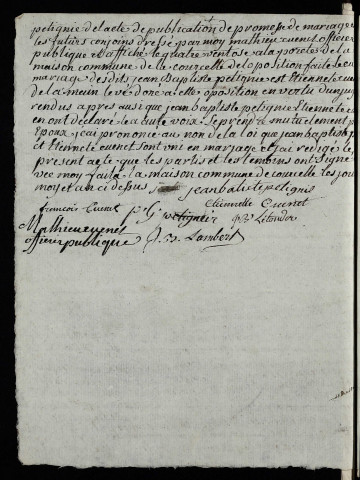 petignie de lacte de publication de promesse de mariage
les futurs conjoins dressé par moy mathieu cuenet officier
publique et affiché le quatre ventose a la porte de la
maison commune de la courcelle de loposition faite le
mariage desdits jean Baptiste petignie et Etiennete cue
de la main levé doné a celle oposition en vertu du jug
rendus apres ausi que jean baptiste petignie Etiennete cu
en ont déclaré a aute voix se prendre mutuelement p
Epoux j'ai prononcé au non de la loi que jean baptiste p
et Etiennete cuenet sont uni en mariage et j'ai redigé le
present acte que les partis et les temoins ont Signé
vec moy fait a la maison commune de courcelle les jou
moy et an ci desus jean batiste petignie
francois Cuenet p. G. petignier Etiennette Cuenet
Mathieu cuenet
officier publique J. B. Lambert